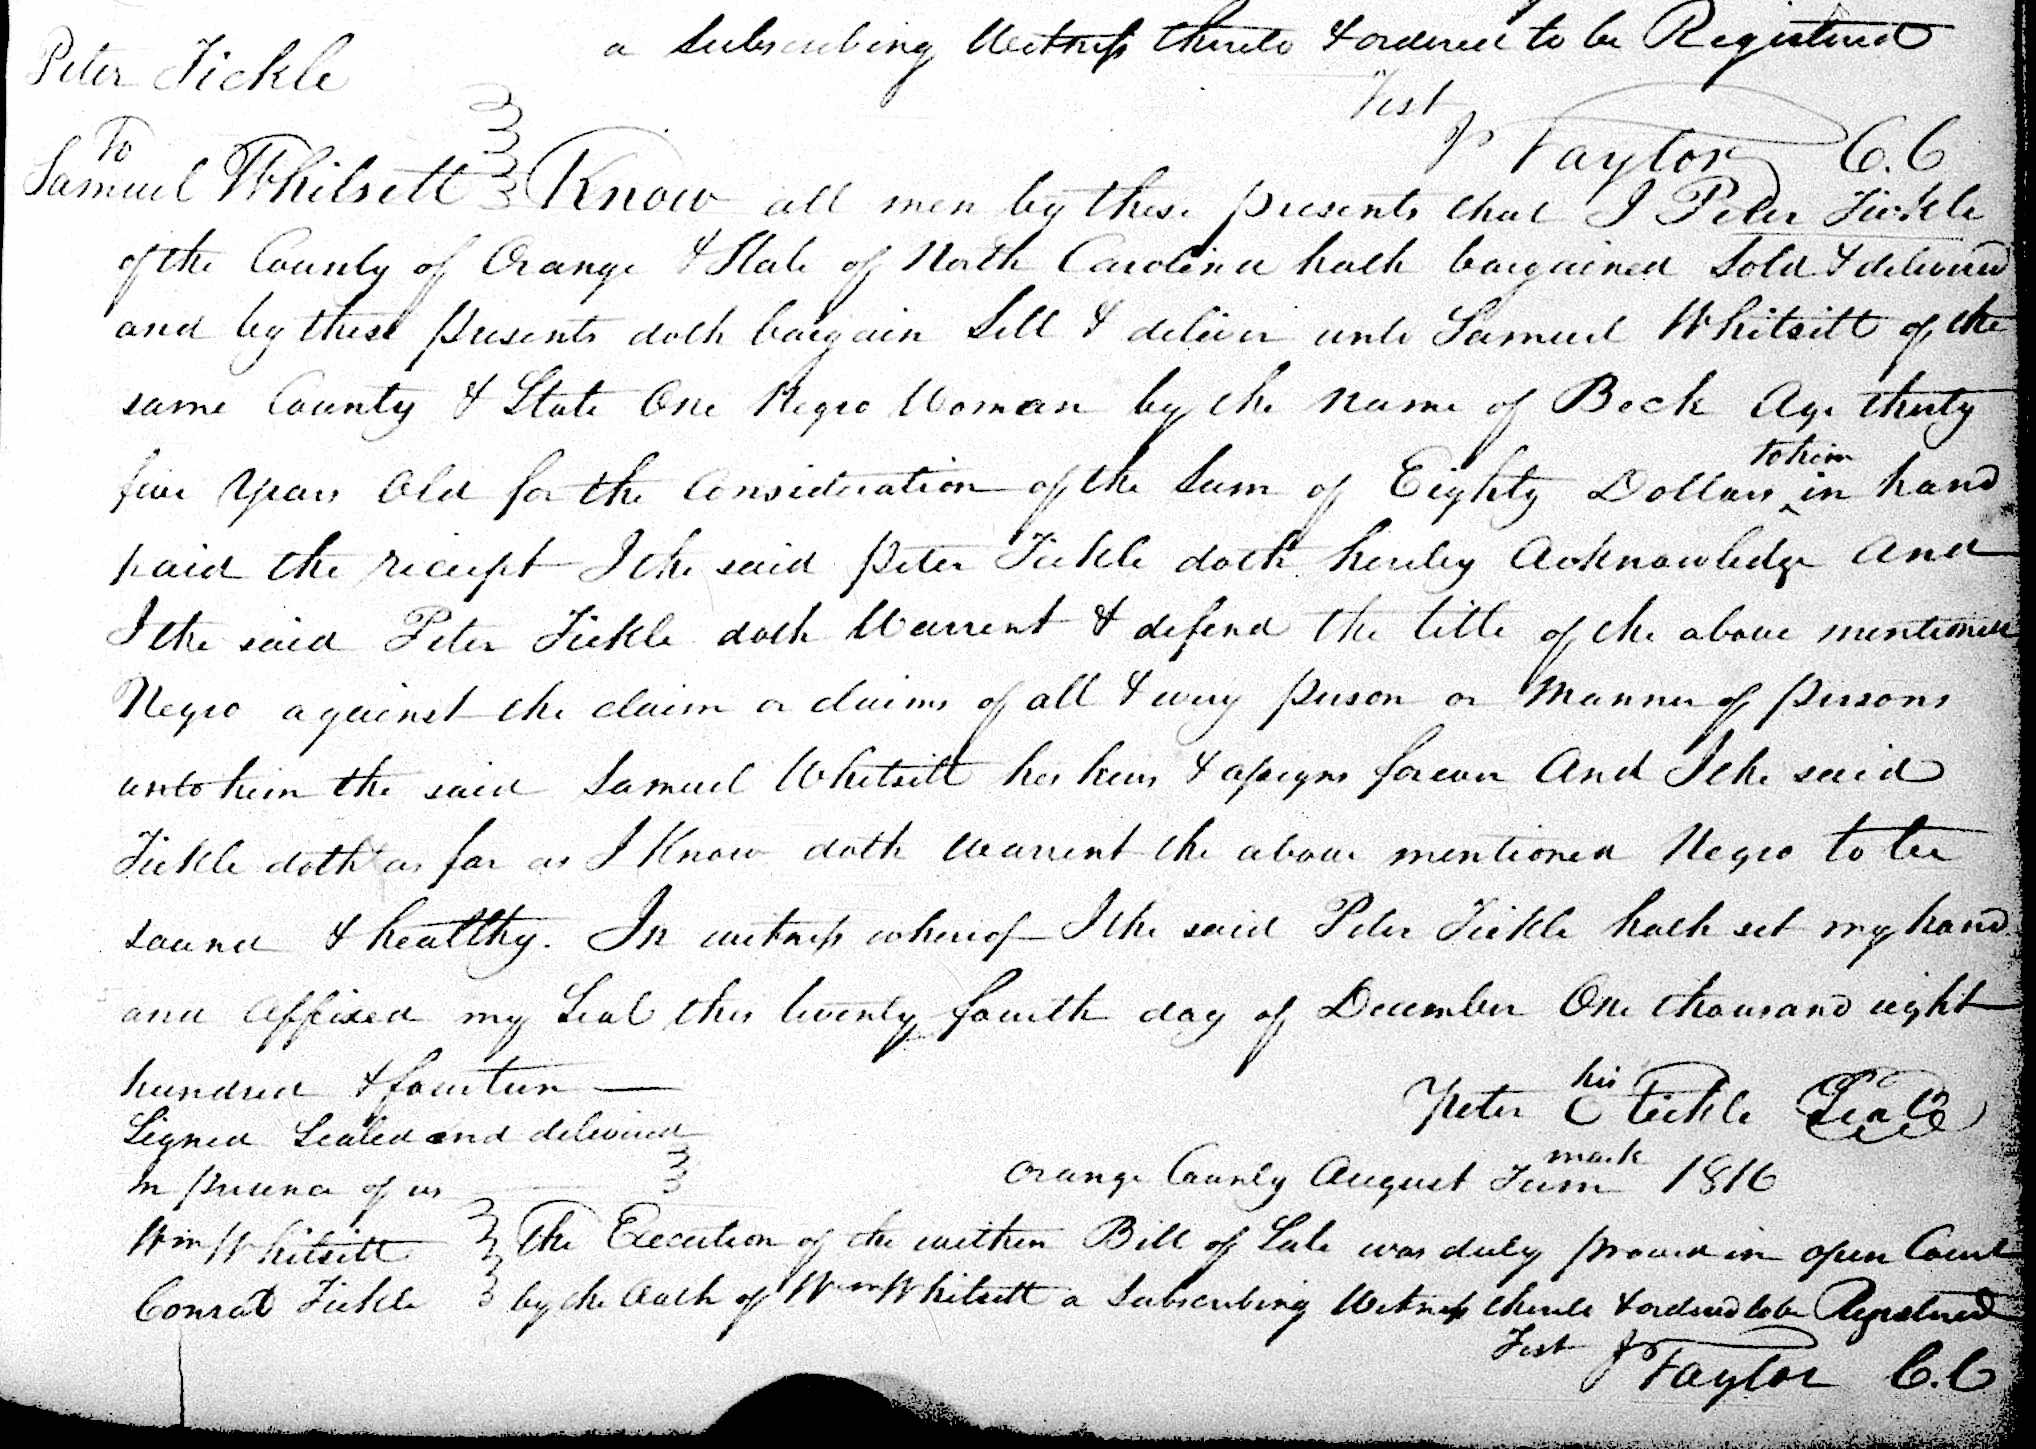 a Subscribing Witness thereto & ordered to be Registered
Peter Tickle
Test
To
J Taylor C.C
Samuel Whitsett Know all men by these presents that I Peter Tickle
of the County of Orange & State of North Carolina hath bargained Sold & delivered
and by these presents doth bargain Sell & deliver unto Samuel Whitsitt of the
same County & State One Negro Woman by the name of Beck Age thirty
five Years Old for the Consideration of the Sum of Eighty Dollars to him in hand
paid the receipt I the said Peter Tickle doth hereby Acknowledge And
I the said Peter Tickle doth Warrent & defend the title of the above mentioned
Negro against the claim or claims of all & every person or Manner of persons
unto him the said Samuel Whitsitt his heirs & assigns forever And I the said
Tickle doth as far as I Know doth Warrent the above mentioned Negro to be
sound & healthy. In witness whereof I the said Peter Tickle hath set my hand
and affixed my Seal this twenty fourth day of December One thousand eight
hundred & fourteen
his
Peter C Tickle Seal
mark
Signed Sealed and delivered
in presence of us
Orange County August Term 1816
Wm Whitsitt The Execution of the within Bill of Sale was duly proved in open Court
Conrat Tickle by the Oath of Wm Whitsitt a Subscribing Witness thereto & ordered to be Registered
Test J Taylor C.C